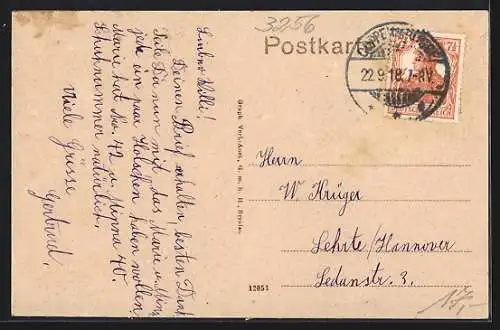 3256
Postkarte
22.9.18. 7-8V.
7½
Lieber Willi!
Deinen Brief erhalten, besten Dank.
Teile Da nun mit das Marie u. Minna
jede ein paar Holschen haben wollen,
Marie hat No. 42 u. Minna 40
Schuhnummer natürlich.
Viele Grüsse
Gertrud.
Graph. Verl.-Anst., G. m. b. H., Breslau
12051
Herrn
W. Krüger
Lehrte/Hannover
Sedanstr. 3.
17,-